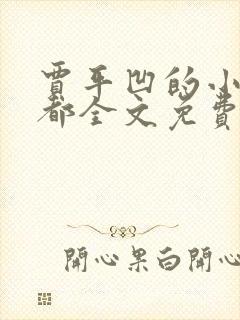 賈平凹的小
都全文免費
開心果白開心